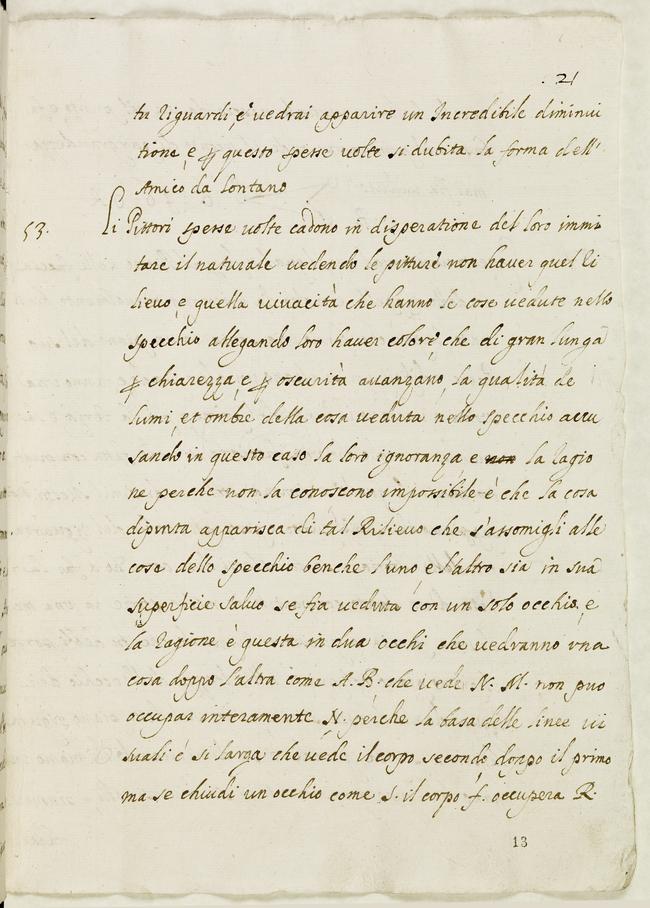 . 21
tu riguardi, e vedrai apparire un Incredibile diminui
tione, e ꝑ questo spesse volte si dubita la forma dell'
Amico da lontano
53. Li Pittori spesse volte cadono in disperatione del loro immi
tare il naturale vedendo le pitture non haver quel ri
lievo, e quella vivacità che hanno le cose vedute nello
specchio allegando loro haver colore che di gran lunga
ꝑ chiarezza, e ꝑ oscurità avanzano, la qualità de
lumi, et ombre della cosa veduta nello specchio accu
sando in questo caso la loro ignoranza e non la ragio
ne perche non la conoscono impossibile è che la cosa
dipinta apparisca di tal Rilievo che s'assomigli alle
cose dello specchio benche l'uno, e l'altro sia in sua
superficie salvo se fia veduta con un solo occhio, e
la ragione è questa in dua occhi che vedranno una
cosa doppo l'altra come A. B. che vede N. M. non può
occupar interamente N. perche la basa delle linee vi
suali è si larga che vede il corpo secondo doppo il primo
ma se chiudi un occhio come s. il corpo f. occupera R.
13